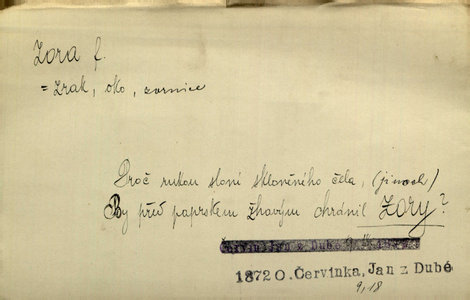 Zora f.
= zrak, oko, zornice
Proč rukou sloní skloněného čela, (jinoch)
By před paprskem žhavým chránil zory?
1872 O. Červinka, Jan z Dubé
9, 18